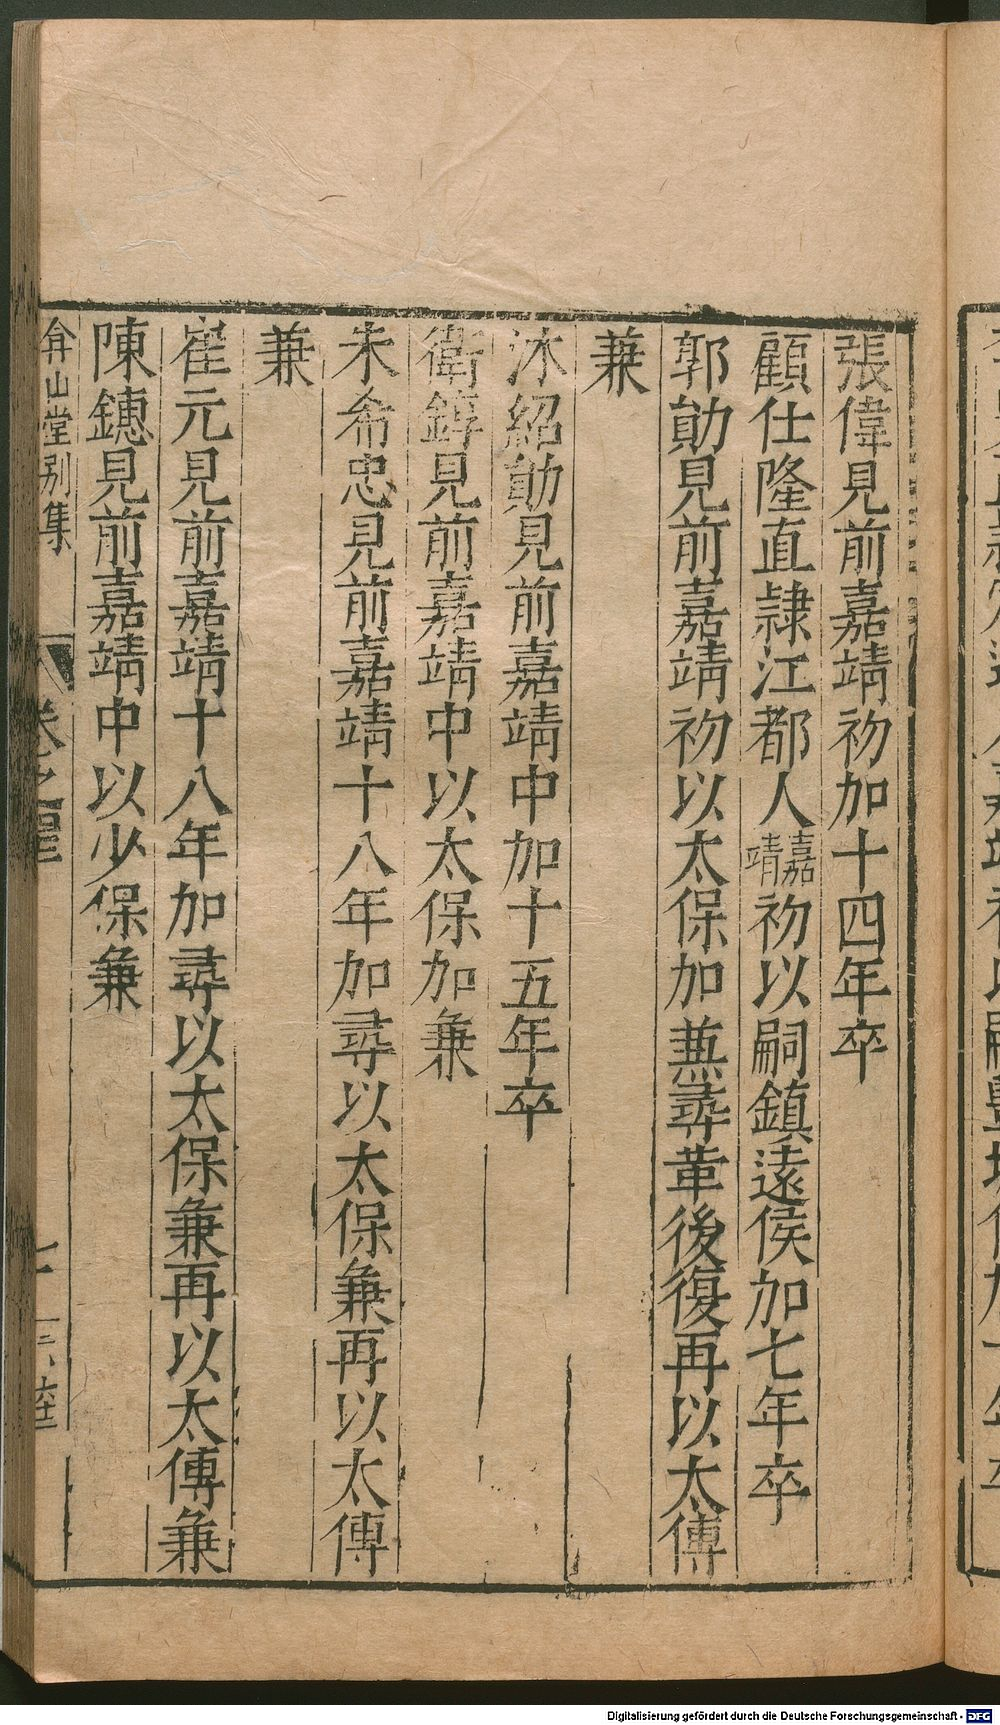 張偉見前嘉靖初加十四年卒
顧仕隆直隷江都人嘉靖初以嗣鎮遠侯加七年卒
郭勛見前嘉靖初以太保加兼尋革後復再以太傅
兼
沐紹勛見前嘉靖中加十五年卒
衛錞見前嘉靖中以太保加兼
朱希忠見前嘉靖十八年加尋以太保兼再以太傅
兼
崔元見前嘉靖十八年加尋以太保兼再以太傅兼
陳鏸見前嘉靖中以少保兼
弇山堂别集
卷之
七
Digitalisierung gefördert durch die Deutsche Forschungsgemeinschaft - DFG